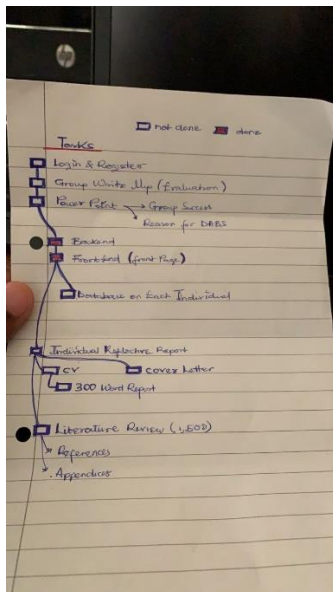 hp
not done done
Tasks
Login & Register
Group Write Up (Evaluation)
Power Point Group Success
Reason for DABS
Backend
Frontend (front Page)
Database on Each Individual
Individual Reflective Report
CV cover Letter
300 Word Report
Literature Review (1,500)
References
Appendices